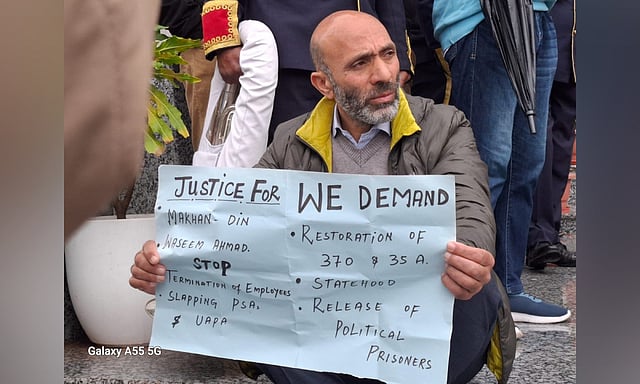 JUSTICE FOR
• MAKHAN-DIN
• WASEEM AHMAD.
STOP
TERMINATION OF EMPLOYEES
• SLAPPING PSA,
& UAPA
WE DEMAND
• RESTORATION OF
370 & 35A.
• STATEHOOD
• RELEASE OF
POLITICAL
PRISONERS
Galaxy A55 5G